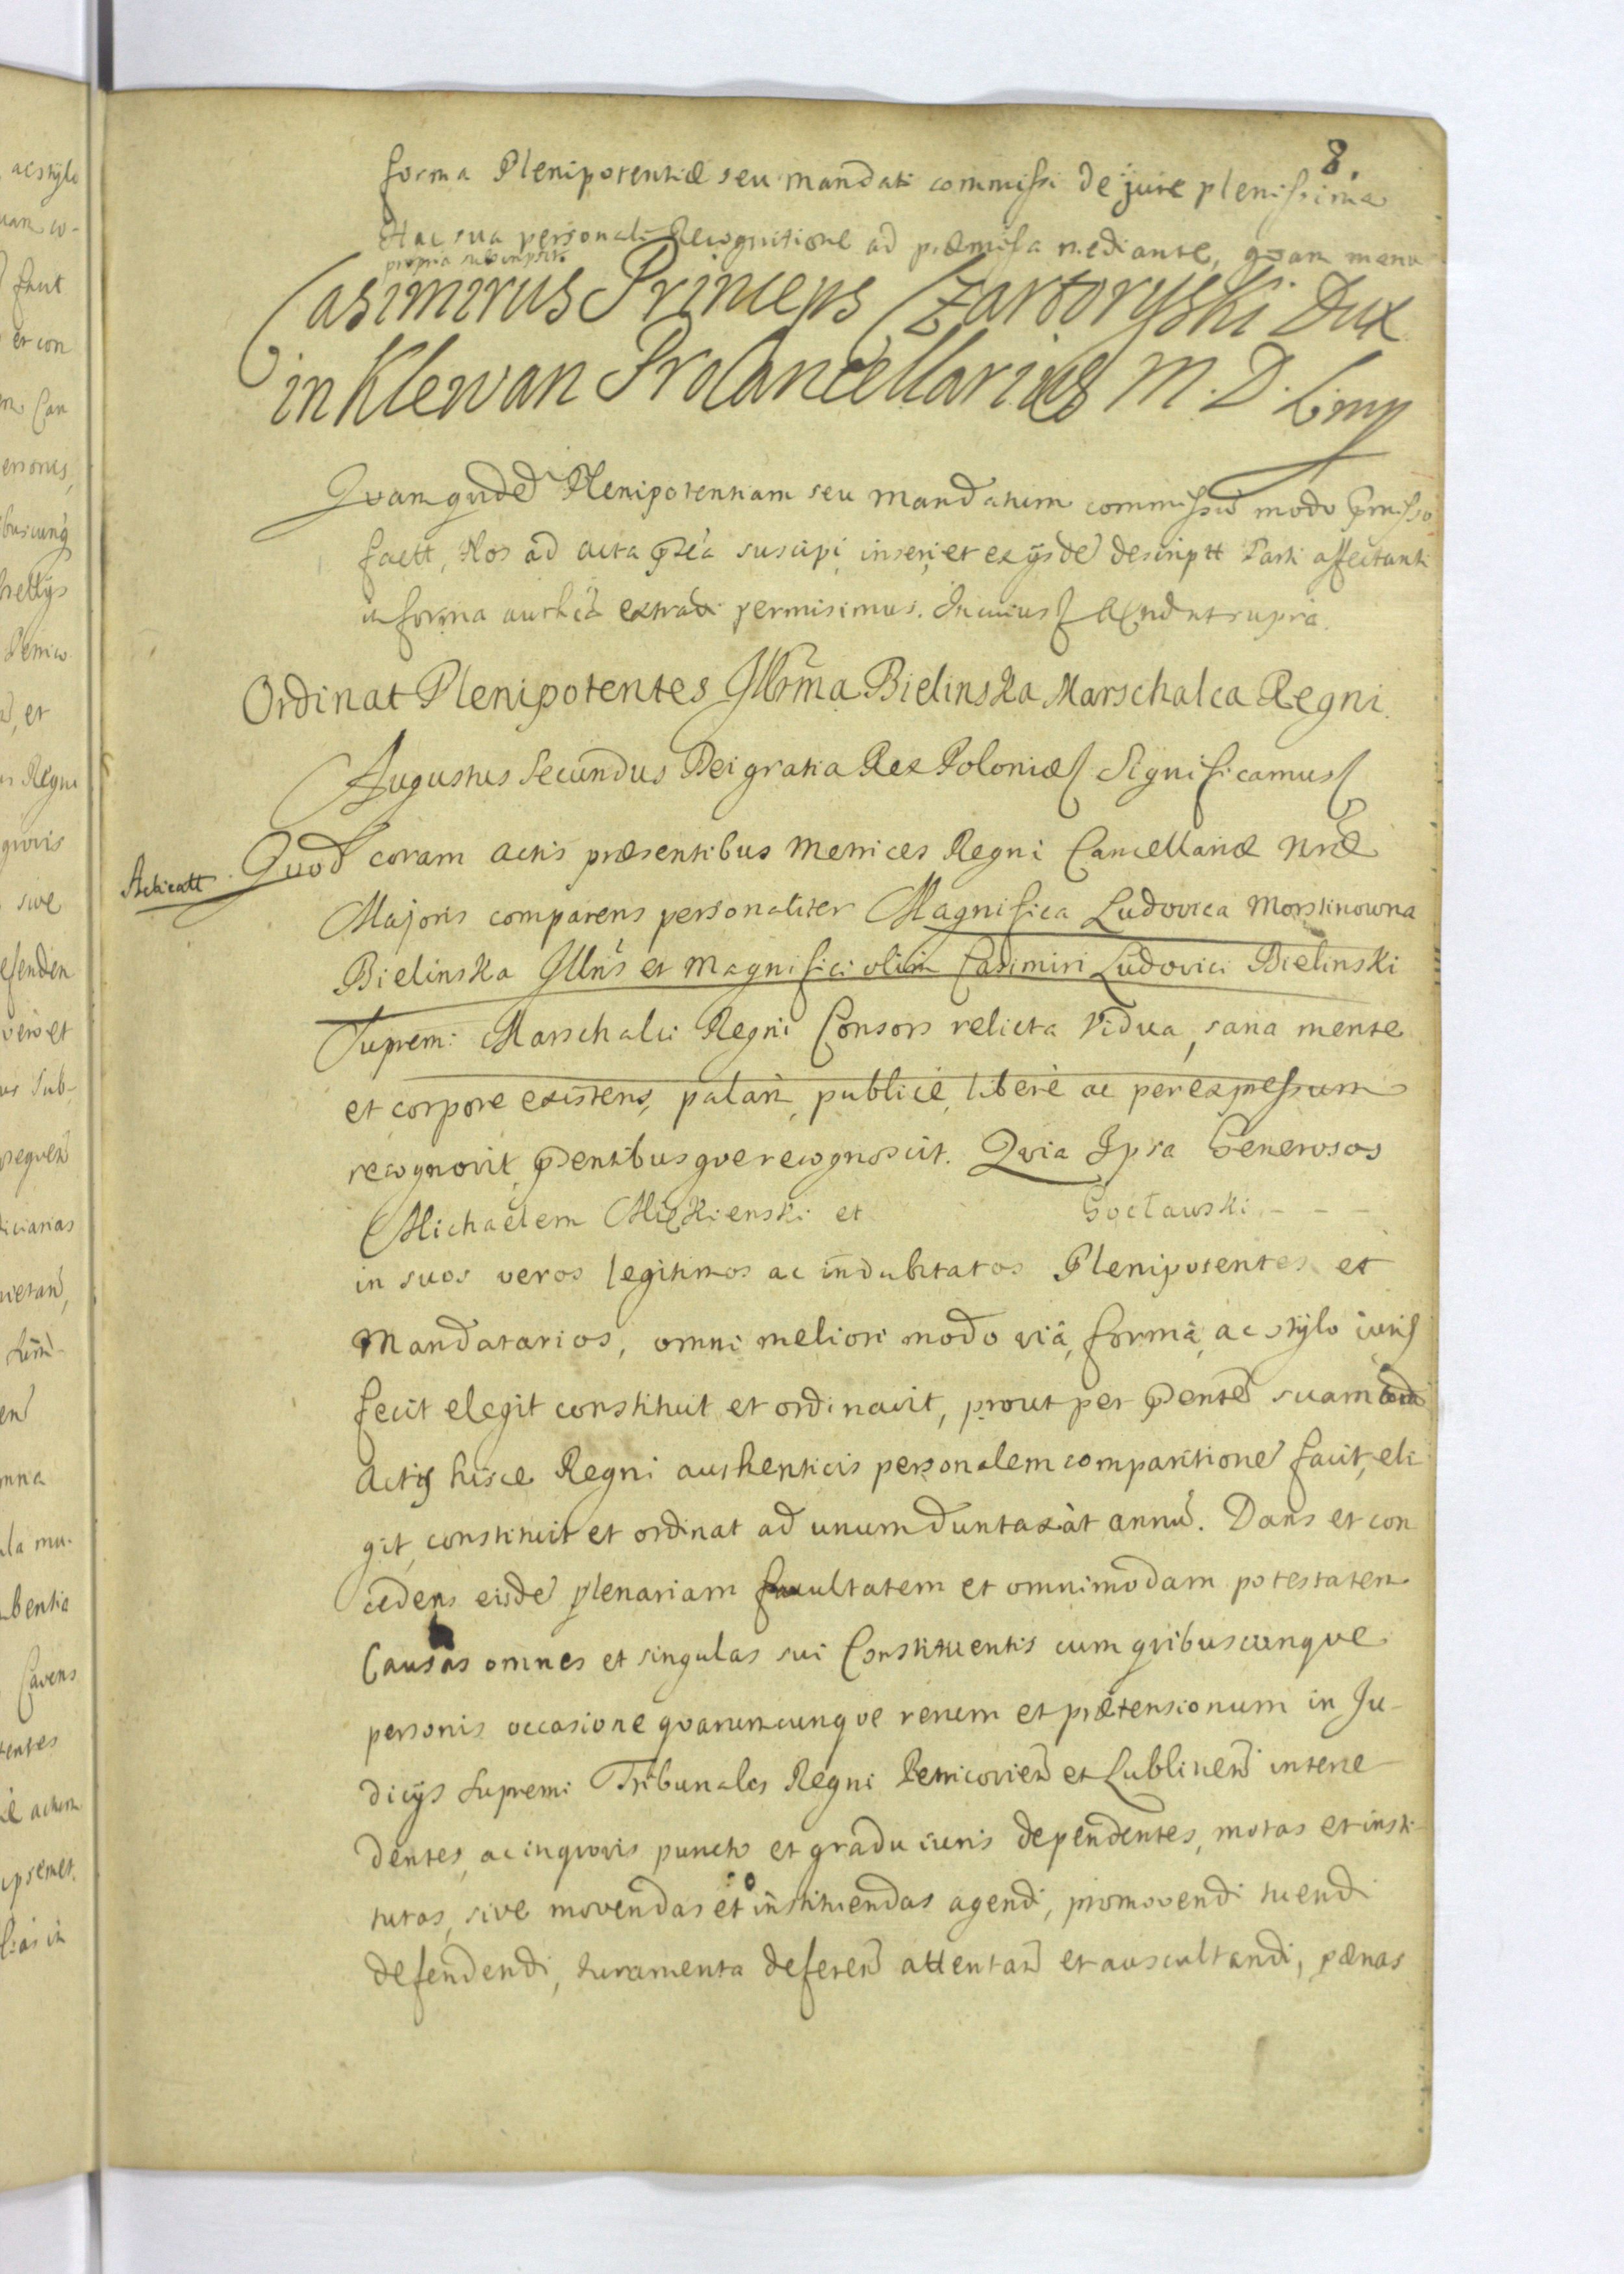 8.
forma Plenipotentiæ seu mandati commissi de jure plenissima
Hac sua personali Recognitione ad præmissa mediante, qvam manu
propria subscripsit
Casimirus Princeps Czartoryski Dux
in Klewan Procancellarius M. D. L. mp
Qvam qvidẽ Plenipotentiam seu mandatum commissũ modo pmisso
factt, Nos ad acta pñtia suscipi, inseri, et ex ijsdẽ descriptt Parti affectanti
in forma authẽa extradi permisimus. In cuius ut supra.
Ordinat Plenipotentes Illrma Bielinska Marschalca Regni.
Augustus Secundus Dei gratia Rex Poloniæ Significamus
Acticatt. Quod coram actis præsentibus Metrices Regni Cancellariæ Nræ
Majoris comparens personaliter Magnifica Ludovica Morstinowna
Bielinska Illris et Magnifici olim Casimiri Ludovici Bielinski
Supremi Marschalci Regni Consors relicta Vidua, sana mente
et corpore existens, palam, publicè, liberè ac per expressum
recognovit, pñtibusqve recognoscit. Qvia Ipsa Generosos
Michaëlem Miękienski et Gocławski - - -
in suos veros legitimos ac indubitatos Plenipotentes et
Mandatarios, omni meliori modo viâ, formâ, ac stylo iuris
fecit elegit constituit et ordinavit, prout per pñtẽ suam corã
Actis hisce Regni authenticis personalem comparitionẽ facit, eli
git, constituit et ordinat ad unum duntaxàt annũ. Dans et con
cedens eisdẽ plenariam facultatem et omnimodam potestatem
Causas omnes et singulas sui Constituentis cum qvibuscunqve
personis occasione qvarumcunqve rerum et prætensionum in Ju-
dicijs Supremi Tribunales Regni Petricovien et Lublinen interce
dentes, ac in qvovis puncto et gradu iuris dependentes, motas et insti-
tutas, sive movendas et instituendas agendi, promovendi tuendi
defendendi, iuramenta deferen attentan et auscultandi, pænas